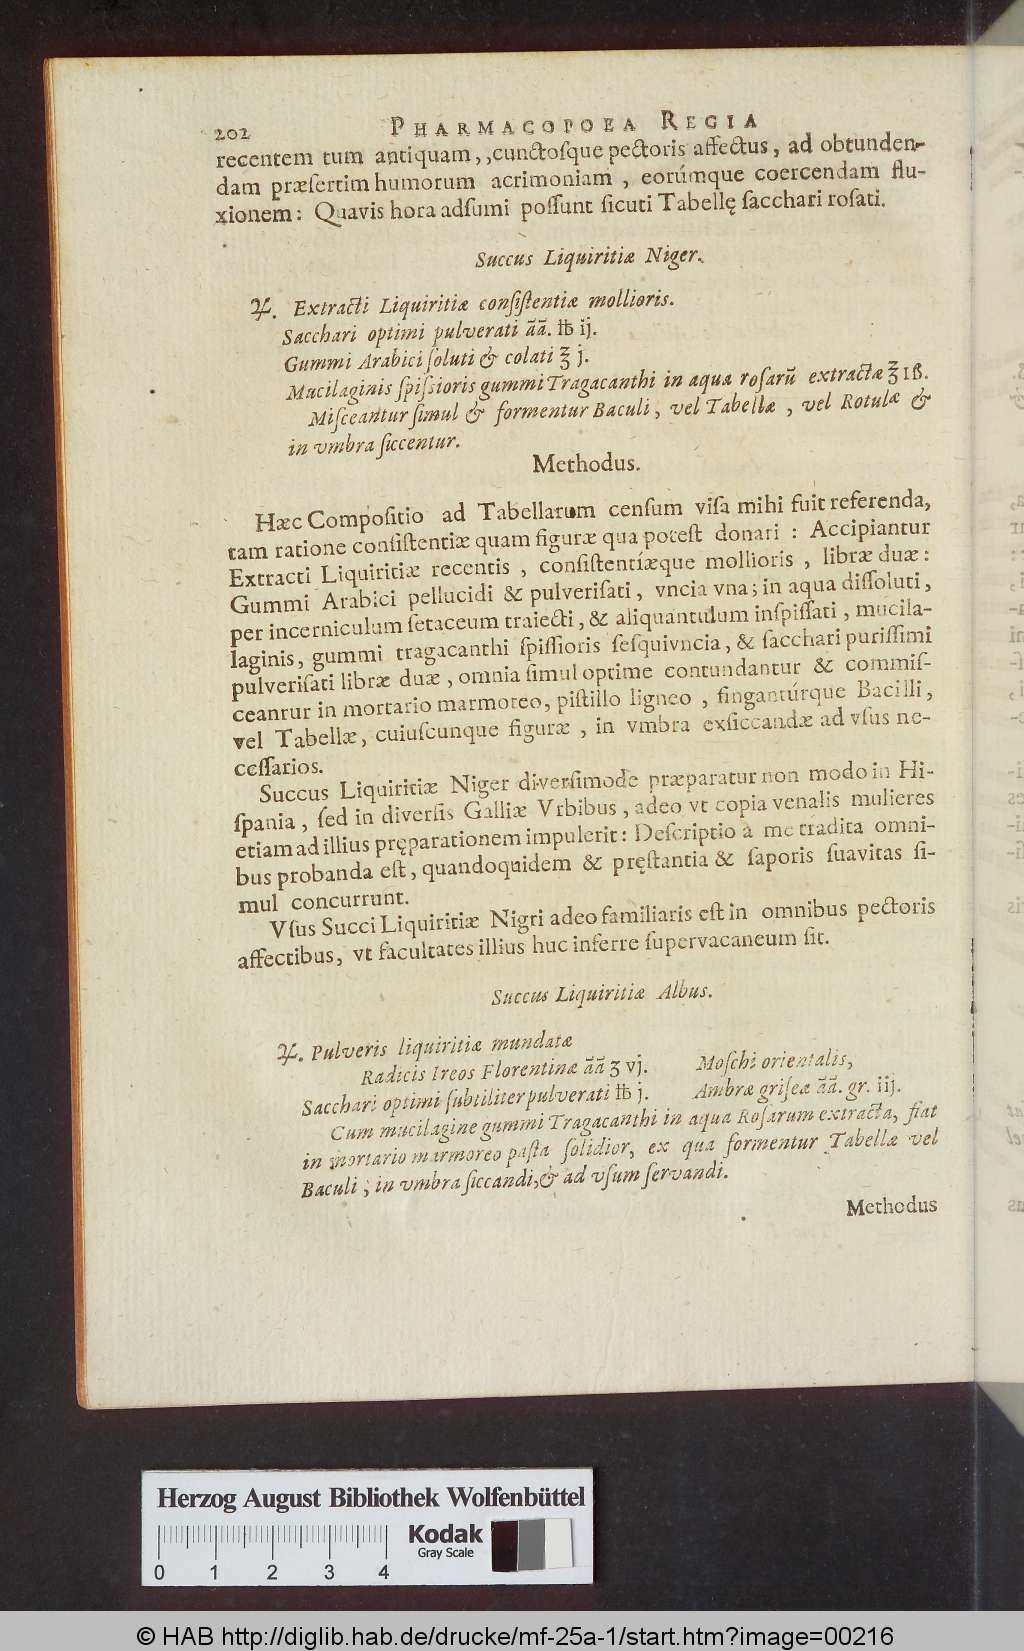 202 PHARMACOPOEA REGIA
recentem tum antiquam, ,cunctoſque pectoris affectus, ad obtunden-
dam præſertim humorum acrimoniam, eorúmque coercendam flu-
xionem: Quavis hora adſumi poſſunt ſicuti Tabellę ſacchari roſati.
Succus Liquiritiæ Niger.
♃. Extracti Liquiritiæ conſiſtentiæ mollioris.
Sacchari optimi pulverati ãã. ℔ ij.
Gummi Arabici ſoluti & colati ℥ j.
Mucilaginis ſpiſſioris gummi Tragacanthi in aqua roſarũ extractæ ℥ Iß.
Miſceantur ſimul & formentur Baculi, vel Tabellæ, vel Rotulæ &
in vmbra ſiccentur.
Methodus.
Hæc Compoſitio ad Tabellarum cenſum viſa mihi fuit referenda,
tam ratione conſiſtentiæ quam figuræ qua poteſt donari: Accipiantur
Extracti Liquiritiæ recentis, conſiſtentíæque mollioris, libræ duæ:
Gummi Arabici pellucidi & pulveriſati, vncia vna; in aqua diſſoluti,
per incerniculum ſetaceum traiecti, & aliquantulum inſpiſſati, mucila-
laginis, gummi tragacanthi ſpiſſioris ſeſquivncia, & ſacchari puriſſimi
pulveriſati libræ duæ, omnia ſimul optime contundantur & commiſ-
ceantur in mortario marmoreo, piſtillo ligneo, fingantúrque Bacilli,
vel Tabellæ, cuiuſcunque figuræ, in vmbra exſiccandæ ad vſus ne-
ceſſarios.
Succus Liquiritiæ Niger diverſimode præparatur non modo in Hi-
ſpania, ſed in diverſis Galliæ Vrbibus, adeo vt copia venalis mulieres
etiam ad illius pręparationem impulerit: Deſcriptio à me tradita omni-
bus probanda eſt, quandoquidem & pręſtantia & ſaporis ſuavitas ſi-
mul concurrunt.
Vſus Succi Liquiritiæ Nigri adeo familiaris eſt in omnibus pectoris
affectibus, vt facultates illius huc inferre ſupervacaneum ſit.
Succus Liquiritiæ Albus.
♃. Pulveris liquiritiæ mundatæ
Radicis Ireos Florentinæ ãã ʒ vj. Moſchi orientalis,
Sacchari optimi ſubtiliter pulverati ℔ j. Ambræ griſeæ ãã. gr. iij.
Cum mucilagine gummi Tragacanthi in aqua Roſarum extracta, fiat
in mortario marmoreo paſta ſolidior, ex qua formentur Tabellæ vel
Baculi; in vmbra ſiccandi, & ad vſum ſervandi.
Methodus
Herzog August Bibliothek Wolfenbüttel
Kodak
Gray Scale
0 1 2 3 4
© HAB http://diglib.hab.de/drucke/mf-25a-1/start.htm?image=00216